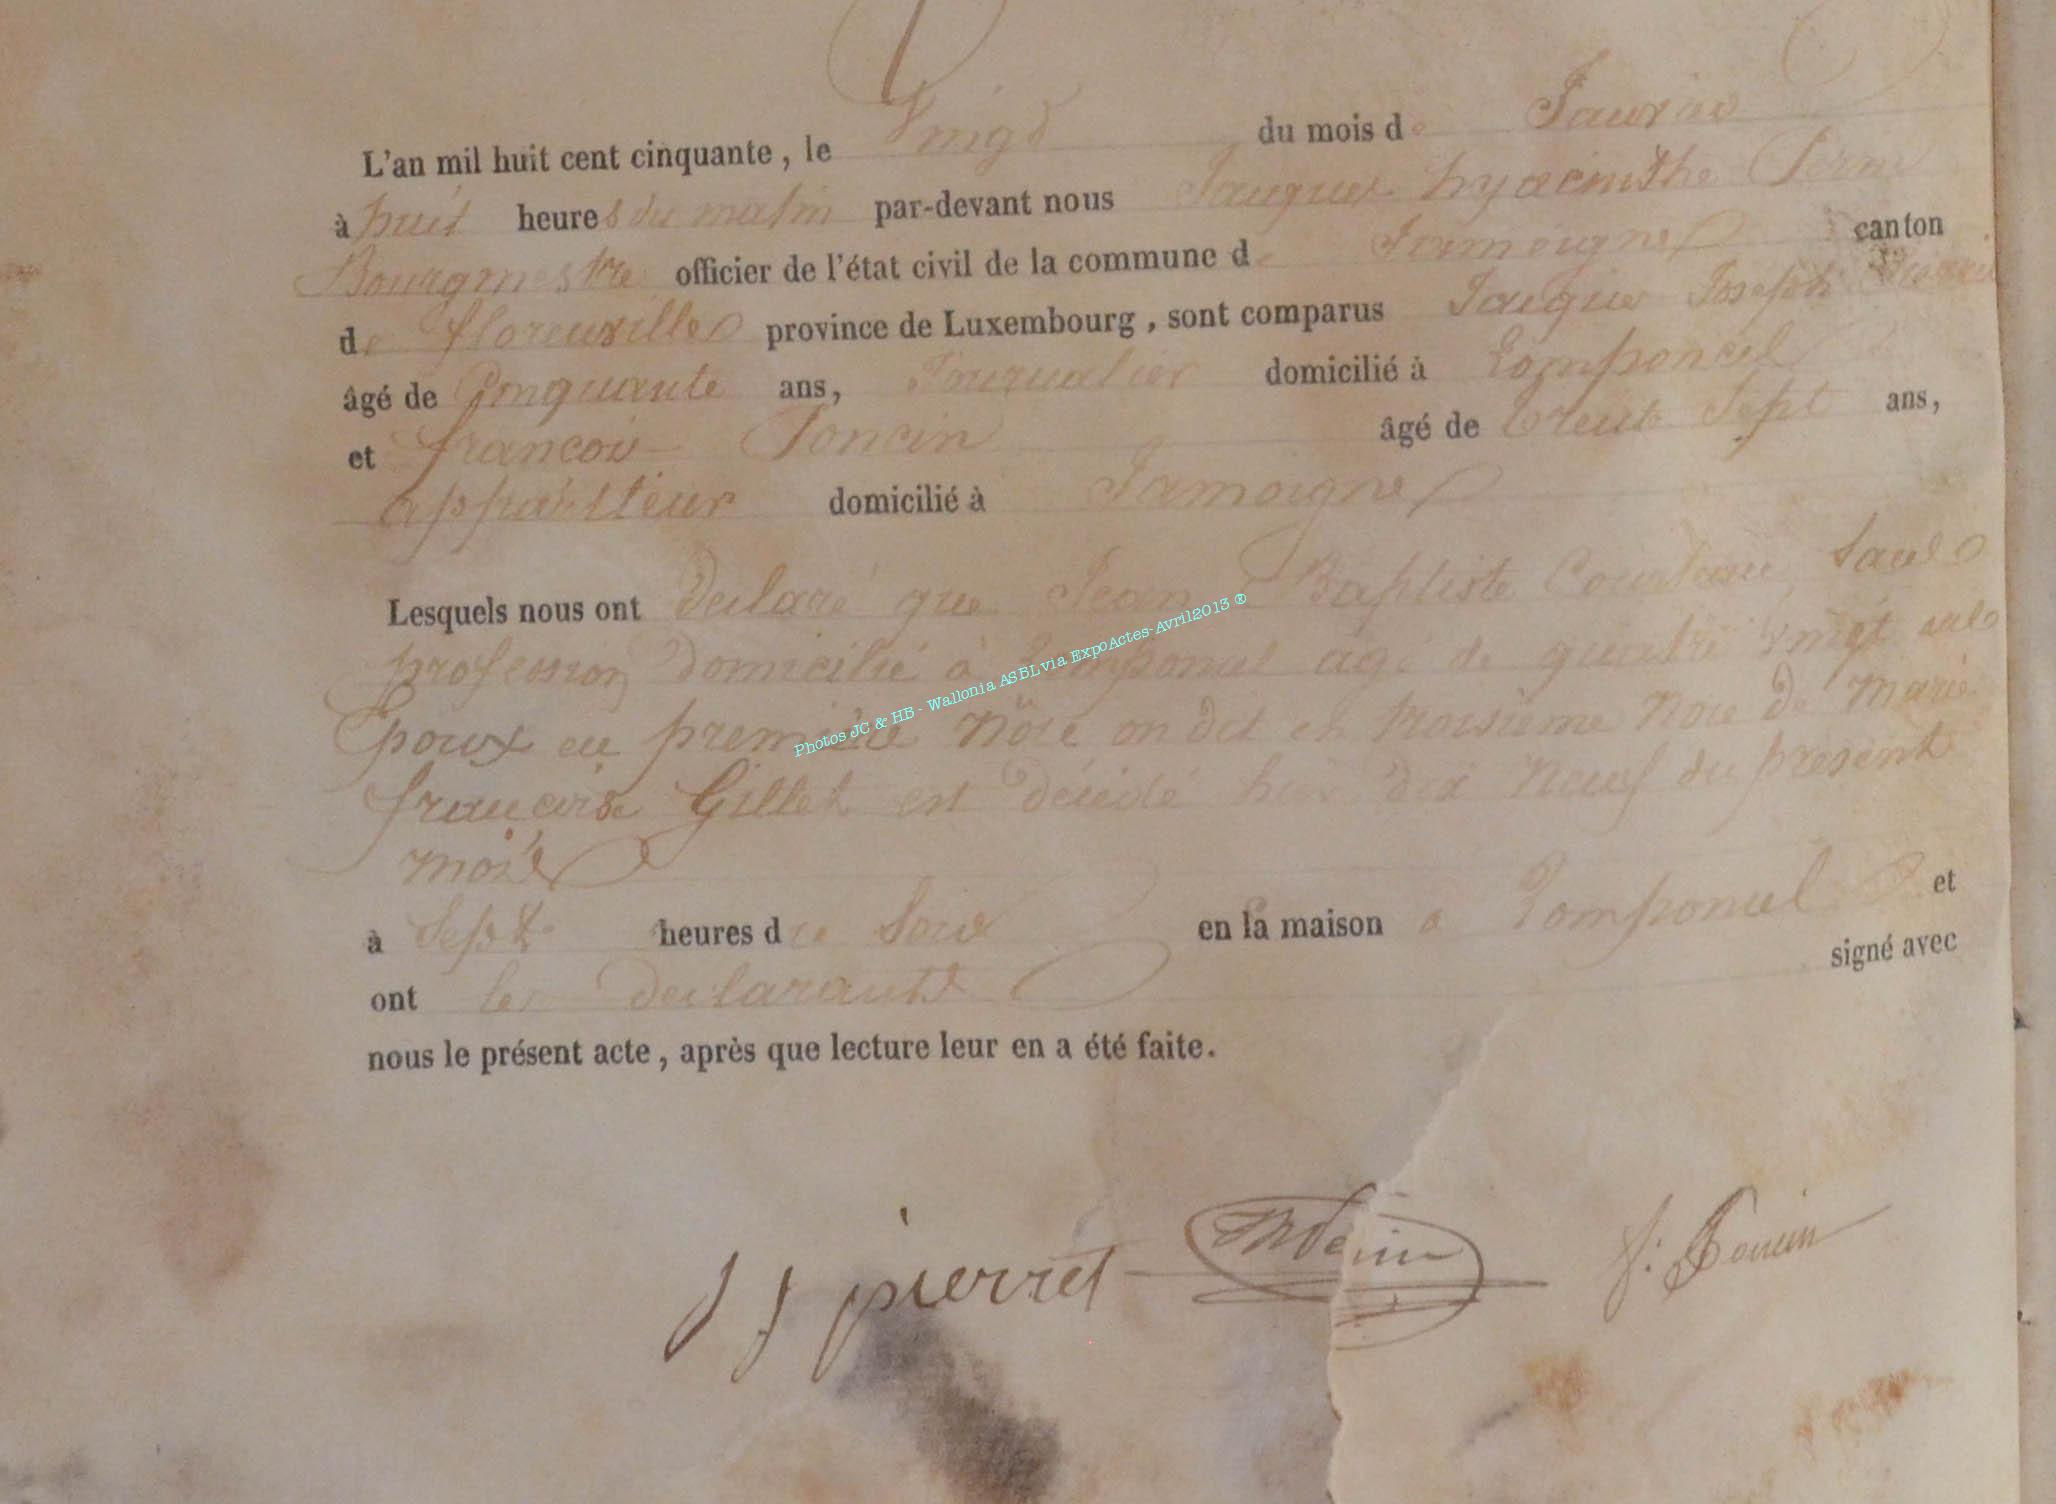 L'an mil huit cent cinquante, le Vingt du mois de Janvier
à huit heures du matin par-devant nous Jacques hyacinthe
Bourgmestre officier de l'état civil de la commune de Jamoigne canton
de florenville province de Luxembourg, sont comparus Jacques Joseph
âgé de Cinquante ans, Journalier domicilié à
et francois Poncin âgé de trente Sept ans,
appariteur domicilié à Jamoigne
Lesquels nous ont declaré que Jean Baptiste Sans
profession domicilié à agé de quatre vingt ans
Epoux en première Nôce on dit en troisieme Noce de Marie
francoise Gillet est décédé hier dix Neuf du présent
mois
à Sept heures du Soir en la maison a et
ont les declarants signé avec
nous le présent acte, après que lecture leur en a été faite.
J J pierret f: Poncin
Photos JC & HB - Wallonia ASBL via ExpoActes-Avril2013 ®